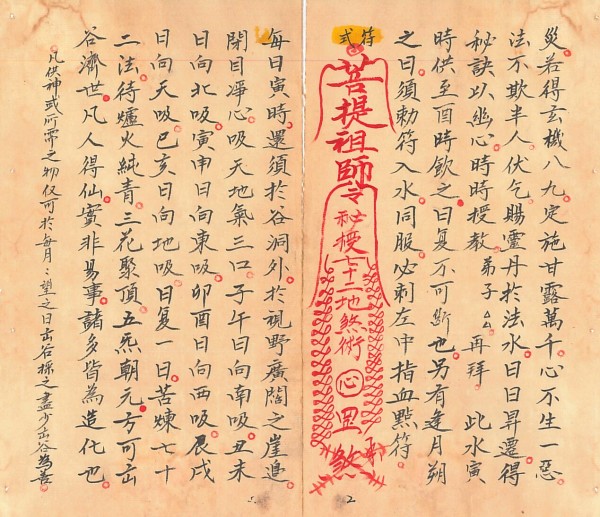 災若得玄機八九定施甘露萬千心不生一惡
法不欺半人伏乞賜靈丹於法水日日昇遷得
秘訣以幽心時時授教弟子厶再拜 此水寅
時供至酉時飲之日復不可斷也另有逢月朔
之日須勅符入水同服必刺左中指血點符
符式
菩提祖師令秘授七十二地煞術
心 罡 煞
每日寅時還須於谷洞外於視野廣闊之崖邊
閉目淨心吸天地氣三口子午日向南吸丑未
日向北吸寅申日向東吸卯酉日向西吸辰戌
日向天吸巳亥日向地吸日復一日苦煉七十
二法待爐火純青三花聚頂五炁朝元方可出
谷濟世凡人得仙實非易事諸多皆為造化也
凡供神或所需之物仅可於每月望之日出谷採之盡少出谷為善